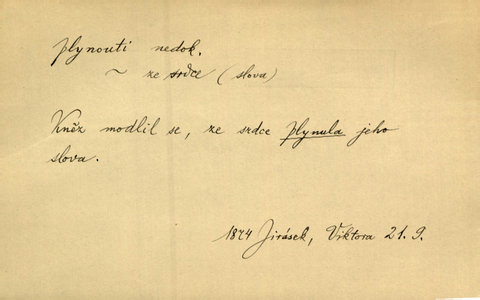 plynouti nedok.
~ ze srdce (slova)
Kněz modlil se, ze srdce plynula jeho
slova.
1874 Jirásek, Viktora 21. 9.